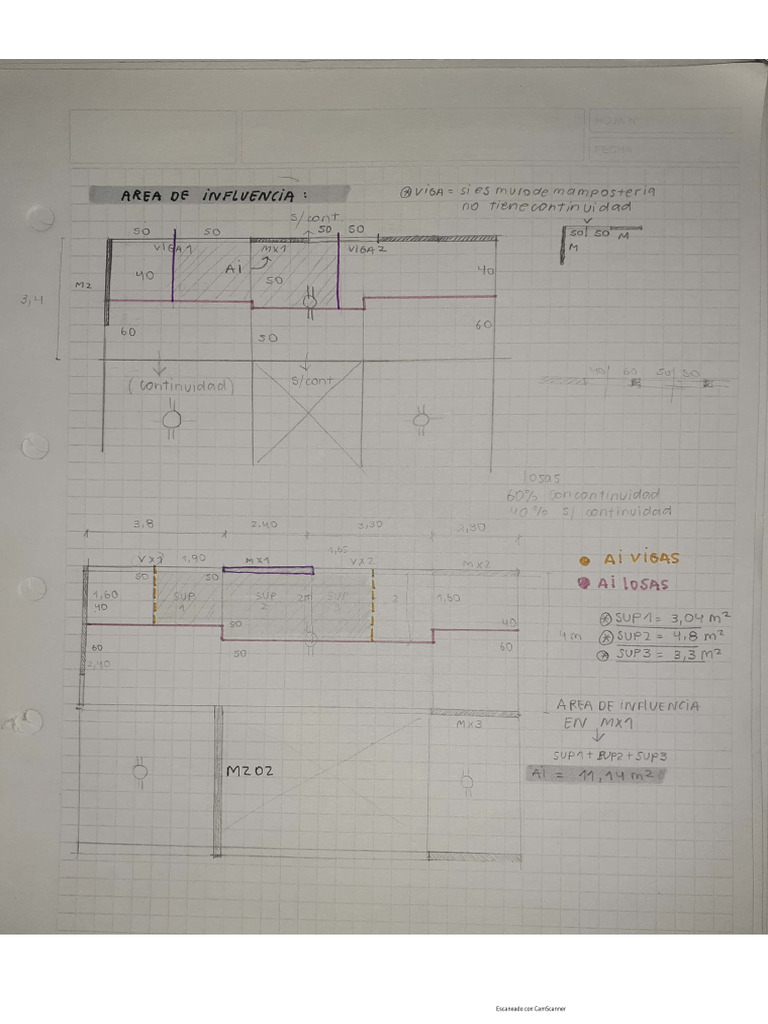 HOJA N°
FECHA
AREA DE INFLUENCIA :
⊛ VIGA = si es muro de mamposteria
no tiene continuidad
s/cont
50 50 50 50
VIGA 1 MX1 VIGA 2
50 50 M
M
Ai
40 50 40
M2
3,4
60 50 60
(continuidad) s/cont
40 60 50 50
losas
60% con continuidad
40% s/ continuidad
3.8 2.40 3,30 2,30
1,90 MX1 1,65 VX2 MX2
50 50
● Ai VIGAS
● Ai LOSAS
1,60 SUP 1 SUP 2 2m SUP 3 2 1,50
40 50 40
60 50 60
2,40
4 m
⊛ SUP1 = 3,04 m²
⊛ SUP2 = 4,8 m²
⊛ SUP3 = 3,3 m²
AREA DE INFLUENCIA
EN MX1
SUP1 + SUP2 + SUP3
Ai = 11,14 m²
MX3
M202
Escaneado con CamScanner